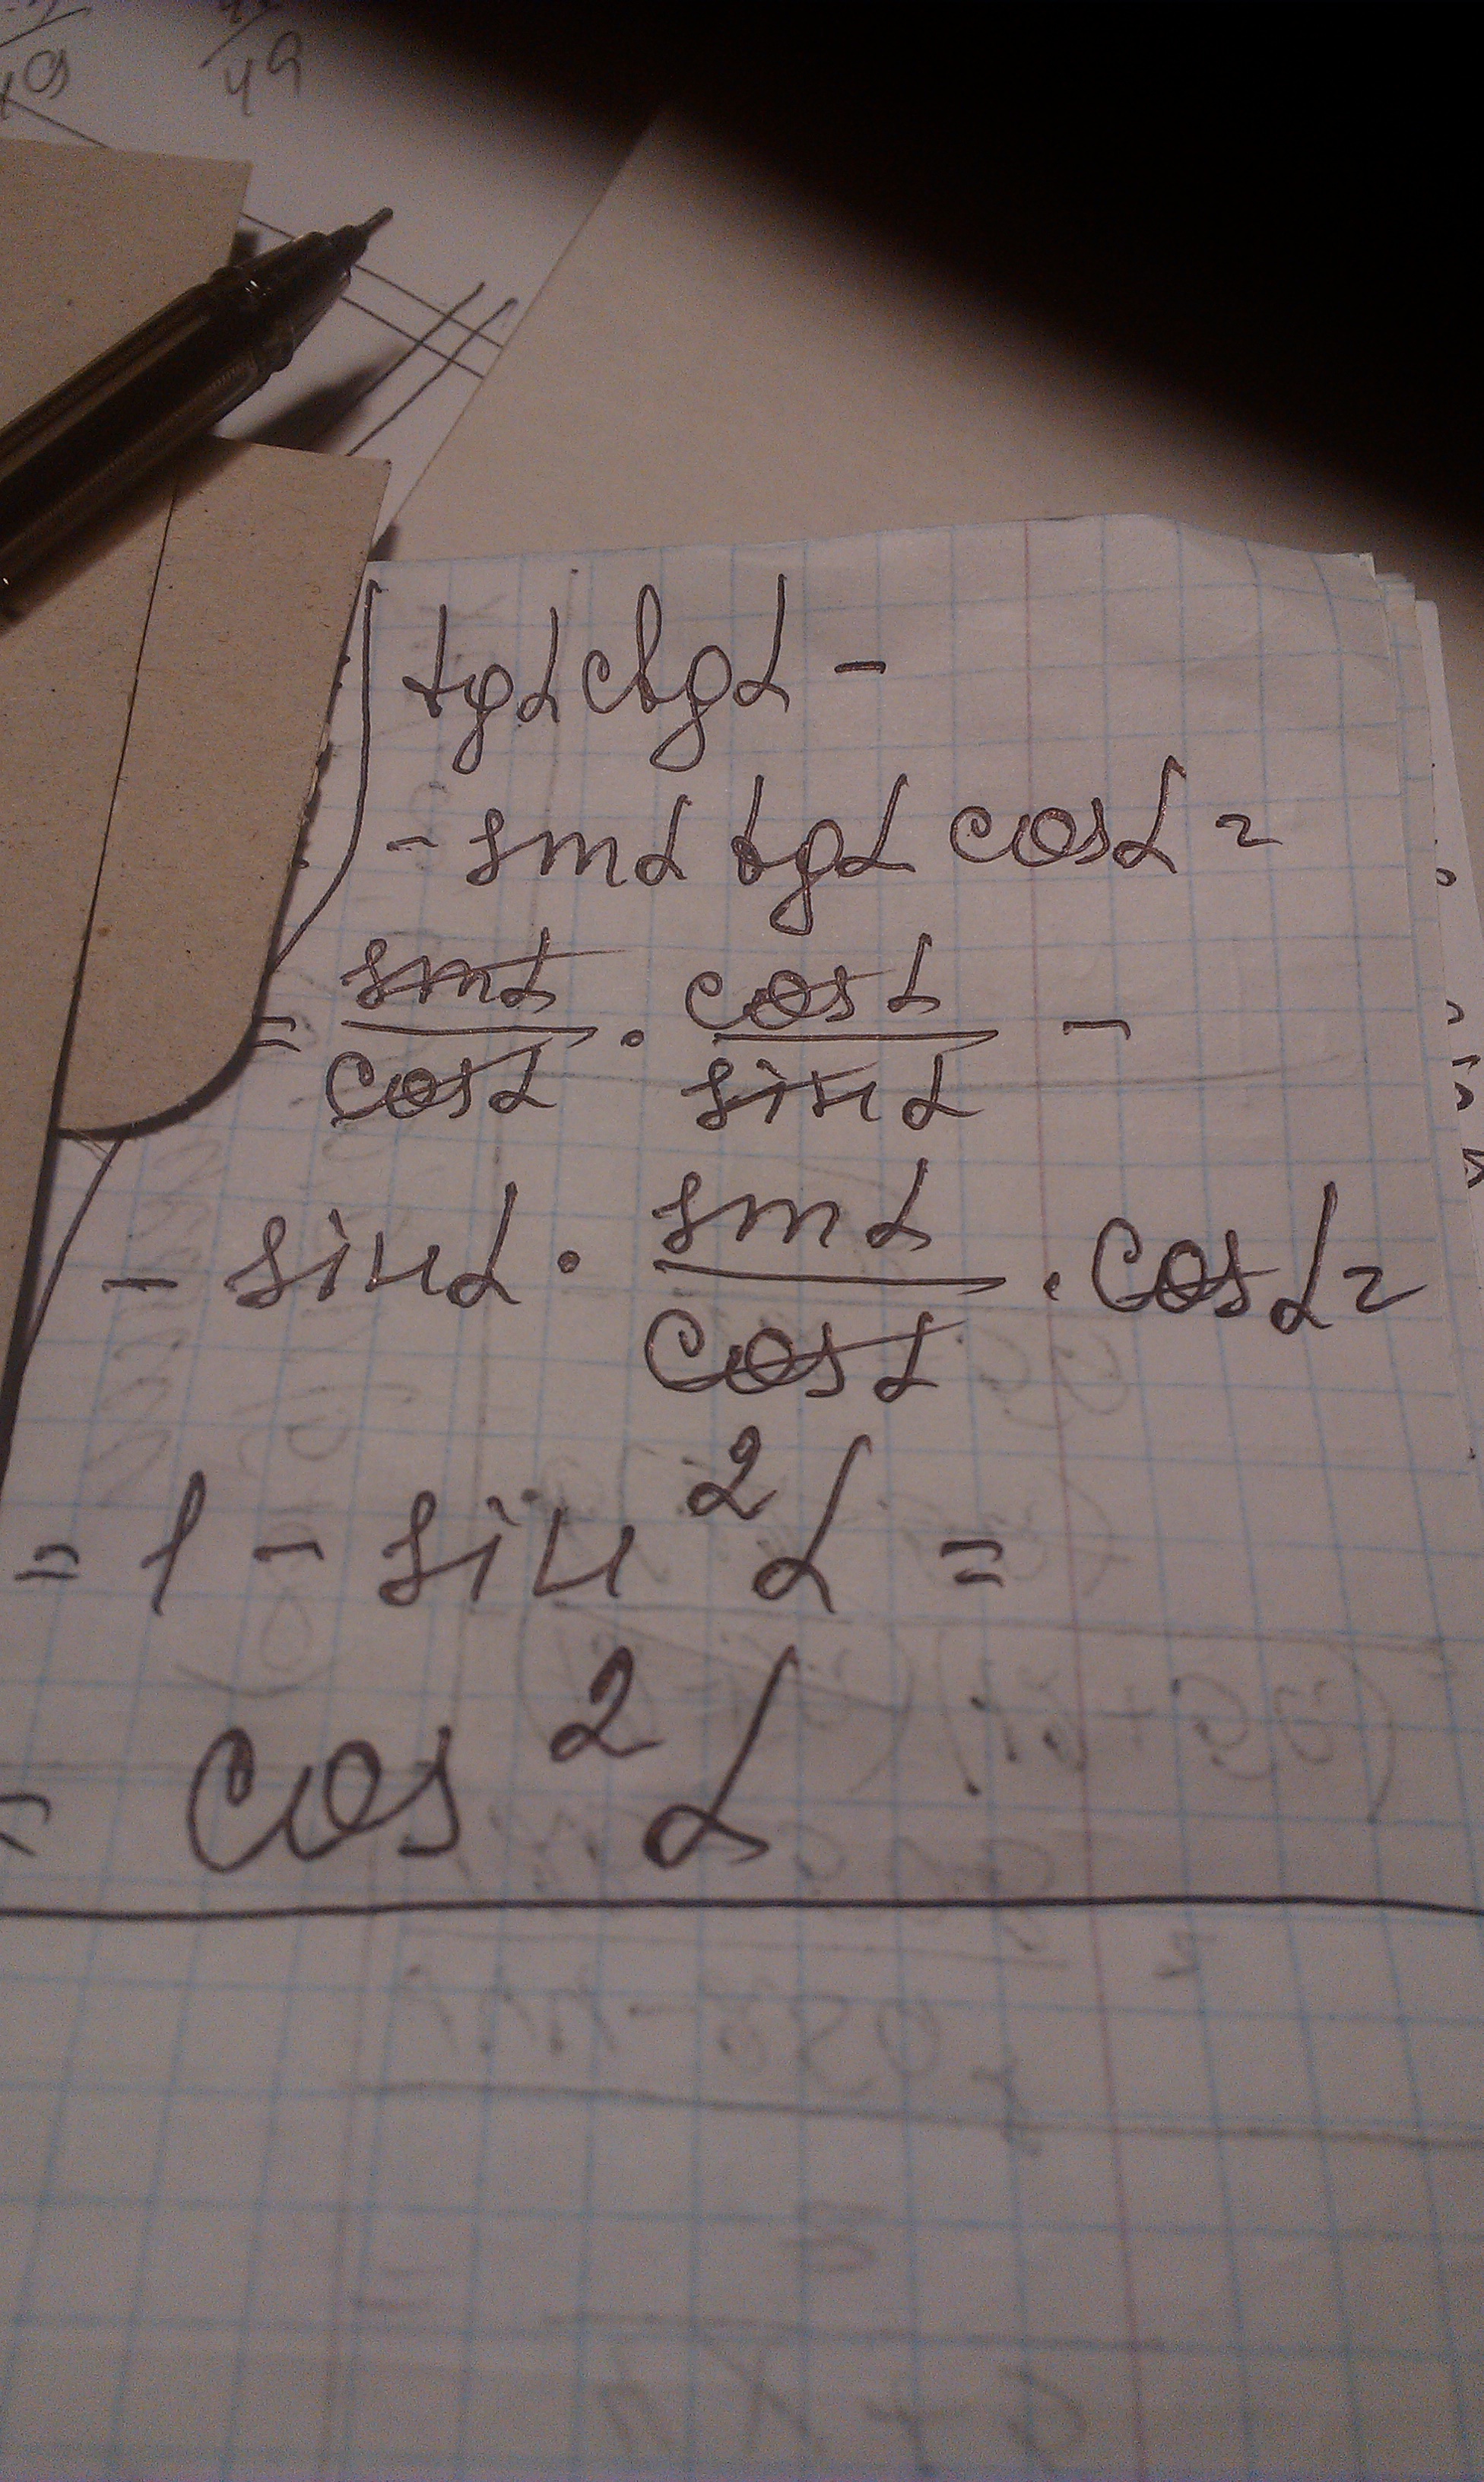 49 49
tgα ctgα -
- sinα tgα cosα =
= sinα/cosα · cosα/sinα -
- sinα · sinα/cosα · cosα =
= 1 - sin²α =
= cos²α